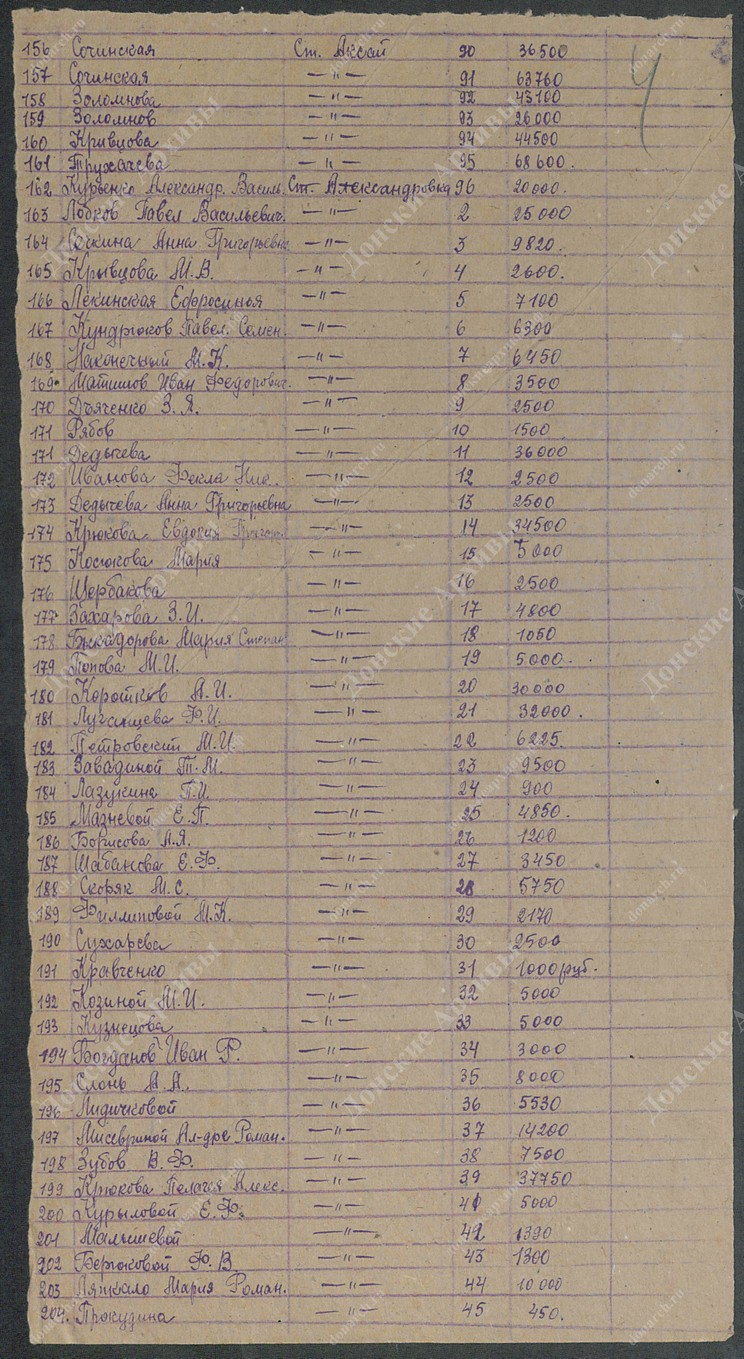 4
156 Сочинская Ст. Аксай 90 36500
157 Сочинская —"— 91 63760
158 Золомнова —"— 92 43100
159 Золомнов —"— 93 26000
160 Кривцова —"— 94 44500
161 Трухачева —"— 95 68600.
162 Курьенко Александр. Василь. Ст. Александровка 96 20000.
163 Лобков Павел Васильевич. —"— 2 25000
164 Соскина Анна Григорьевна —"— 3 9820.
165 Крывцова М.В. —"— 4 2600.
166 Лекинская Ефросинья —"— 5 7100
167 Кундрюков Павел. Семен. —"— 6 6300
168 Наконечный М.К. —"— 7 6450
169 Матишов Иван Федорович. —"— 8 3500
170 Дъяченко З.Я. —"— 9 2500
171 Рябов —"— 10 1500
171 Дедычева —"— 11 36000
172 Иванова Фекла Ник. —"— 12 2500
173 Дедычева Анна Григорьевна —"— 13 2500
174 Крюкова Евдокия —"— 14 34500
175 Косюкова Мария —"— 15 5000
176 Щербакова —"— 16 2500
177 Захарова З.И. —"— 17 4800
178 Быкадорова Мария Степан —"— 18 1050
179 Попова М.И. —"— 19 5.000.
180 Коротков А.И. —"— 20 30000
181 Луганцева Ф.И. —"— 21 32000.
182 Петровский М.И. —"— 22 6225.
183 Завадиной Т.М. —"— 23 9500
184 Лазукина П.И. —"— 24 900
185 Мазневой Е.П. —"— 25 4850.
186 Борисова А.Я. —"— 26 1200
187 Шабанова Е.Ф. —"— 27 3450
188 Скоряк М.С. —"— 28 5750
189 Филлиповой М.К. —"— 29 2170
190 Сухарева —"— 30 2500
191 Кравченко —"— 31 1000 руб.
192 Козиной М.И. —"— 32 5000
193 Кузнецова —"— 33 5.000
194 Богданов Иван Р. —"— 34 3000
195 Слонь А.А. —"— 35 8000
196 Лидичковой —"— 36 5530
197 Ал-дре Роман. —"— 37 14200
198 Зубов В.Ф. —"— 38 7500
199 Крюкова Полагея Алекс. —"— 39 37750
200 Курыловой Е.Ф. —"— 41 5000
201 Малышевой —"— 42 1390
202 Берюковой Ф.В. —"— 43 1300
203 Ляпкало Мария Роман. —"— 44 10 000
204. Прокудина —"— 45 450.
Донские Архивы
donarch.ru